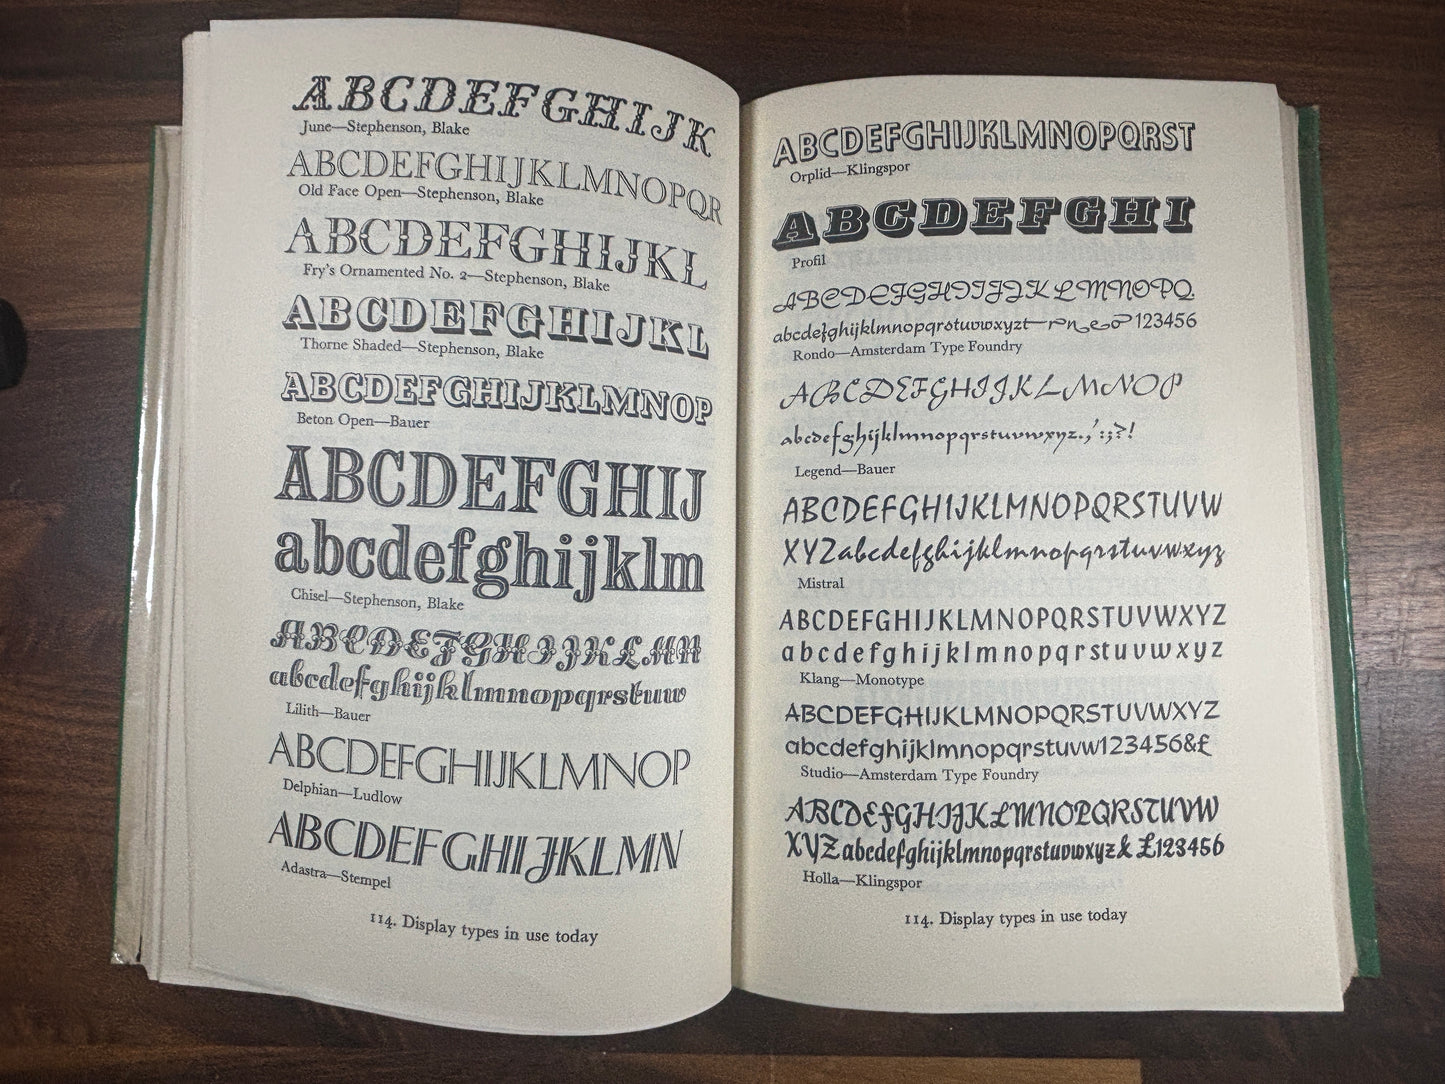 ABCDEFGHIJK
June—Stephenson, Blake
ABCDEFGHIJKLMNOPQR
Old Face Open—Stephenson, Blake
ABCDEFGHIJKL
Fry's Ornamented No. 2—Stephenson, Blake
ABCDEFGHIJKL
Thorne Shaded—Stephenson, Blake
ABCDEFGHIJKLMNOP
Beton Open—Bauer
ABCDEFGHIJ
abcdefghijklm
Chisel—Stephenson, Blake
ABCDEFGHIJKLMN
abcdefghijklmnopqrstuw
Lilith—Bauer
ABCDEFGHIJKLMNOP
Delphian—Ludlow
ABCDEFGHIJKLMN
Adastra—Stempel
114. Display types in use today
ABCDEFGHIJKLMNOPQRST
Orplid—Klingspor
ABCDEFGHI
Profil
ABCDEFGHIJJKLMNOPQ
abcdefghijklmnopqrstuvwxyz 123456
Rondo—Amsterdam Type Foundry
ABCDEFGHIJKLMNOP
abcdefghijklmnopqrstuvwxyz.,':;?!
Legend—Bauer
ABCDEFGHIJKLMNOPQRSTUVW
XYZabcdefghijklmnopqrstuvwxyz
Mistral
ABCDEFGHIJKLMNOPQRSTUVWXYZ
abcdefghijklmnopqrstuvwxyz
Klang—Monotype
ABCDEFGHIJKLMNOPQRSTUVWXYZ
abcdefghijklmnopqrstuvw123456&£
Studio—Amsterdam Type Foundry
ABCDEFGHIJKLMNOPQRSTUVW
XYZabcdefghijklmnopqrstuvwxyz&£123456
Holla—Klingspor
114. Display types in use today